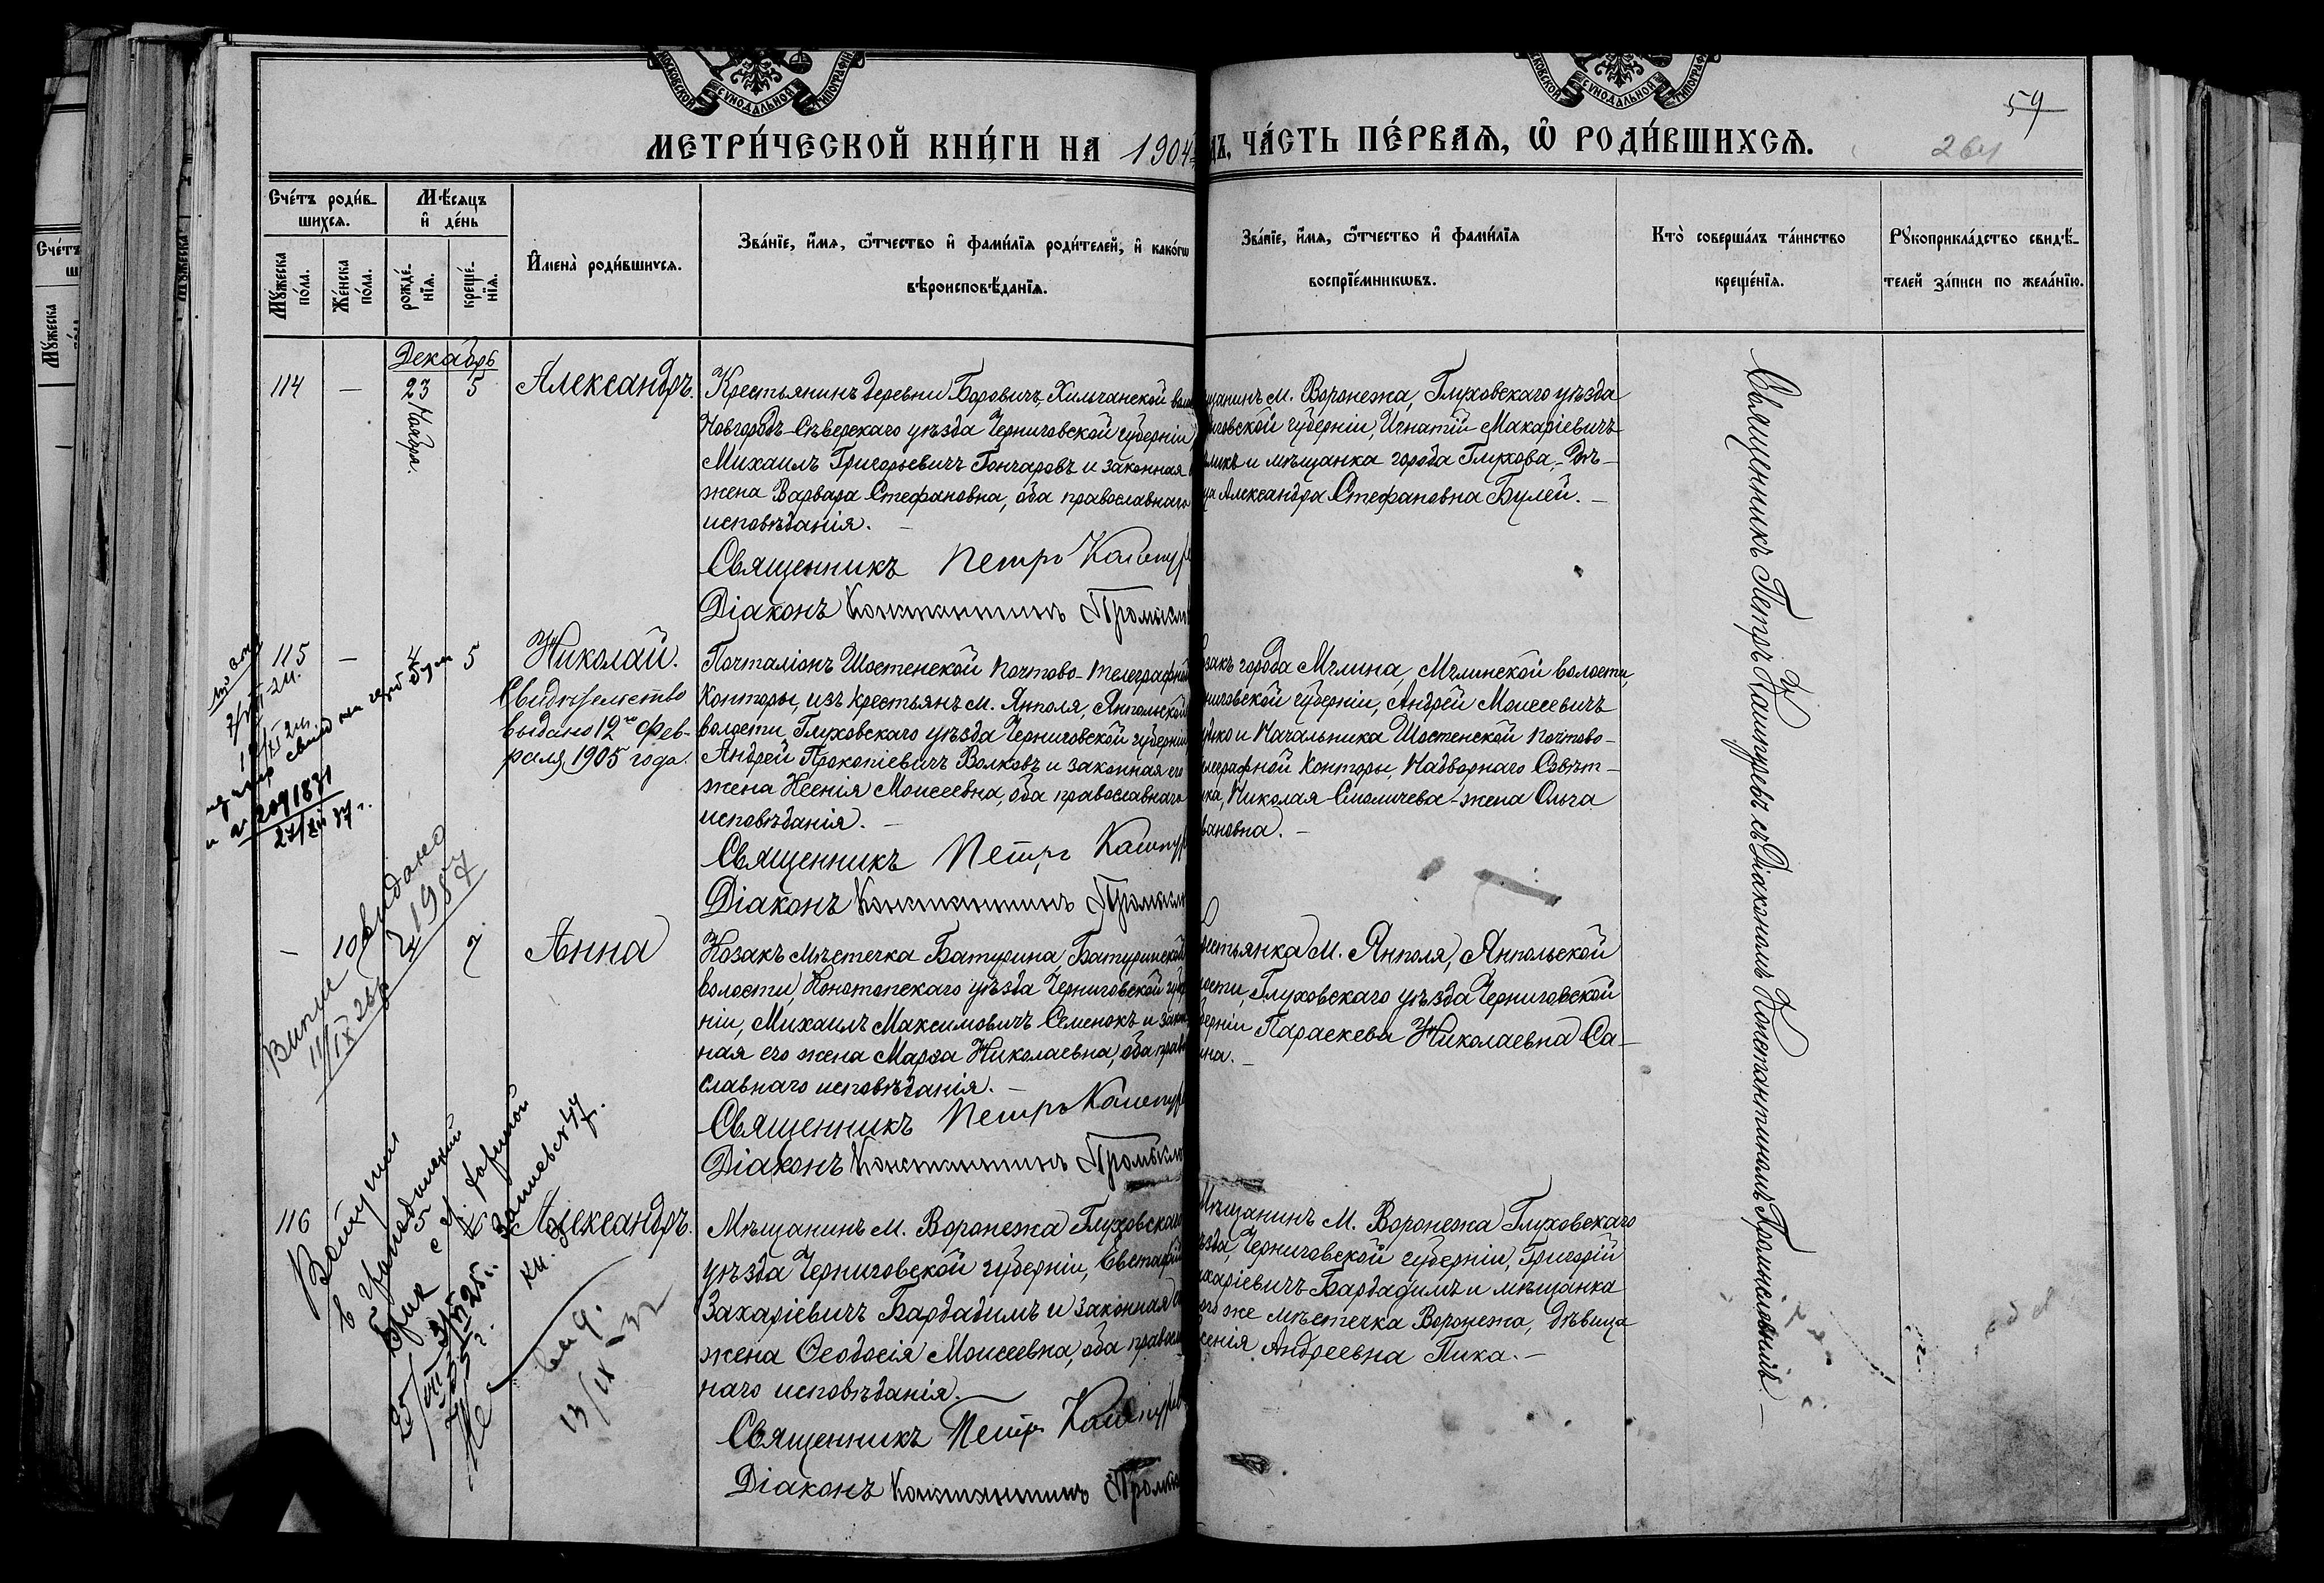 МЕТРИ́ЧЕСКОЙ КНИ́ГИ НА 1904
ЧА́СТЬ ПЕ́РВАЯ, Ѡ РОДИ́ВШИХСЯ.
59
264
Сче́тъ роди́в-
шихся.
Мѣ́сяцъ
и де́нь
Му́жеска
по́ла.
Же́нска
по́ла.
рожде́-
нїя.
креще́-
нїя.
Имена̀ роди́вшихся.
Зва́нїе, и́мя, ѻ́тчество и фами́лїя роди́телей, и како́гѡ
вѣроисповѣ́данїя.
Зва́нїе, и́мя, ѻ́тчество и фами́лїя
воспрїе́мникѡвъ.
Кто̀ соверша́лъ та́инство
креще́нїя.
Рукоприкла́дство свидѣ́-
телей за́писи по жела́нїю.
Декабрь
114 — 23 Ноября. 5 Александръ.
Крестьянинъ деревни Боровичъ, Химчанской
Новгородъ-Сѣверскаго уѣзда Черниговской губерніи
Михаилъ Григорьевичъ Гончаровъ и законная
жена Варвара Стефановна, оба православнаго
исповѣданія. —
Священникъ Петръ
Діаконъ Константинъ
щанинъ м. Воронежа, Глуховскаго уѣзда
иговской губерніи, Игнатій Макаріевичъ
и мѣщанка города Глухова, —
Александра Стефановна Булей. —
115 — 4 5 Николай.
Свидѣтельство
выдано 12го Фев-
раля 1905 года.
Почталіонъ Шостенской почтово-телеграфной
Конторы, изъ крестьянъ м. Янполя, Янпольской
волости, Глуховскаго уѣзда Черниговской губерніи
Андрей Прокопіевичъ Волковъ и законная его
жена Ксенія Моисеевна, оба православнаго
исповѣданія. —
Священникъ Петръ
Діаконъ Константинъ
закъ города Мглина, Мглинской волости,
ниговской губерніи, Андрей Моисеевичъ
и Начальника Шостенской почтово-
леграфной Конторы, Надворнаго Совѣт-
ка, Николая Смоличева - жена Ольга
вановна. —
— 2 Анна
Козакъ мѣстечка Батурина, Батуринской
волости, Конотопскаго уѣзда Черниговской губер
ніи, Михаилъ Максимовичъ Семенокъ и закон
ная его жена Марѳа Николаевна, оба право
славнаго исповѣданія. —
Священникъ Петръ
Діаконъ Константинъ
естьянка м. Янполя, Янпольской
ости, Глуховскаго уѣзда Черниговской
берніи Параскева Николаевна Са-
ина. —
116 Александръ.
Мѣщанинъ м. Воронежа Глуховскаго
уѣзда Черниговской губерніи, Евстафій
Захаріевичъ Бардадимъ и законная
жена Ѳеодосія Моисеевна, оба правосл
наго исповѣданія. —
Священникъ Петръ
Діаконъ Константинъ
Мѣщанинъ м. Воронежа Глуховскаго
ѣзда, Черниговской губерніи, Григорій
харіевичъ Бардадимъ и мѣщанка
того же мѣстечка Воронежа, дѣвица
сенія Андреевна Пика. —
Священникъ Петръ Кашпуревъ съ Діакономъ Константиномъ Промысловымъ. —